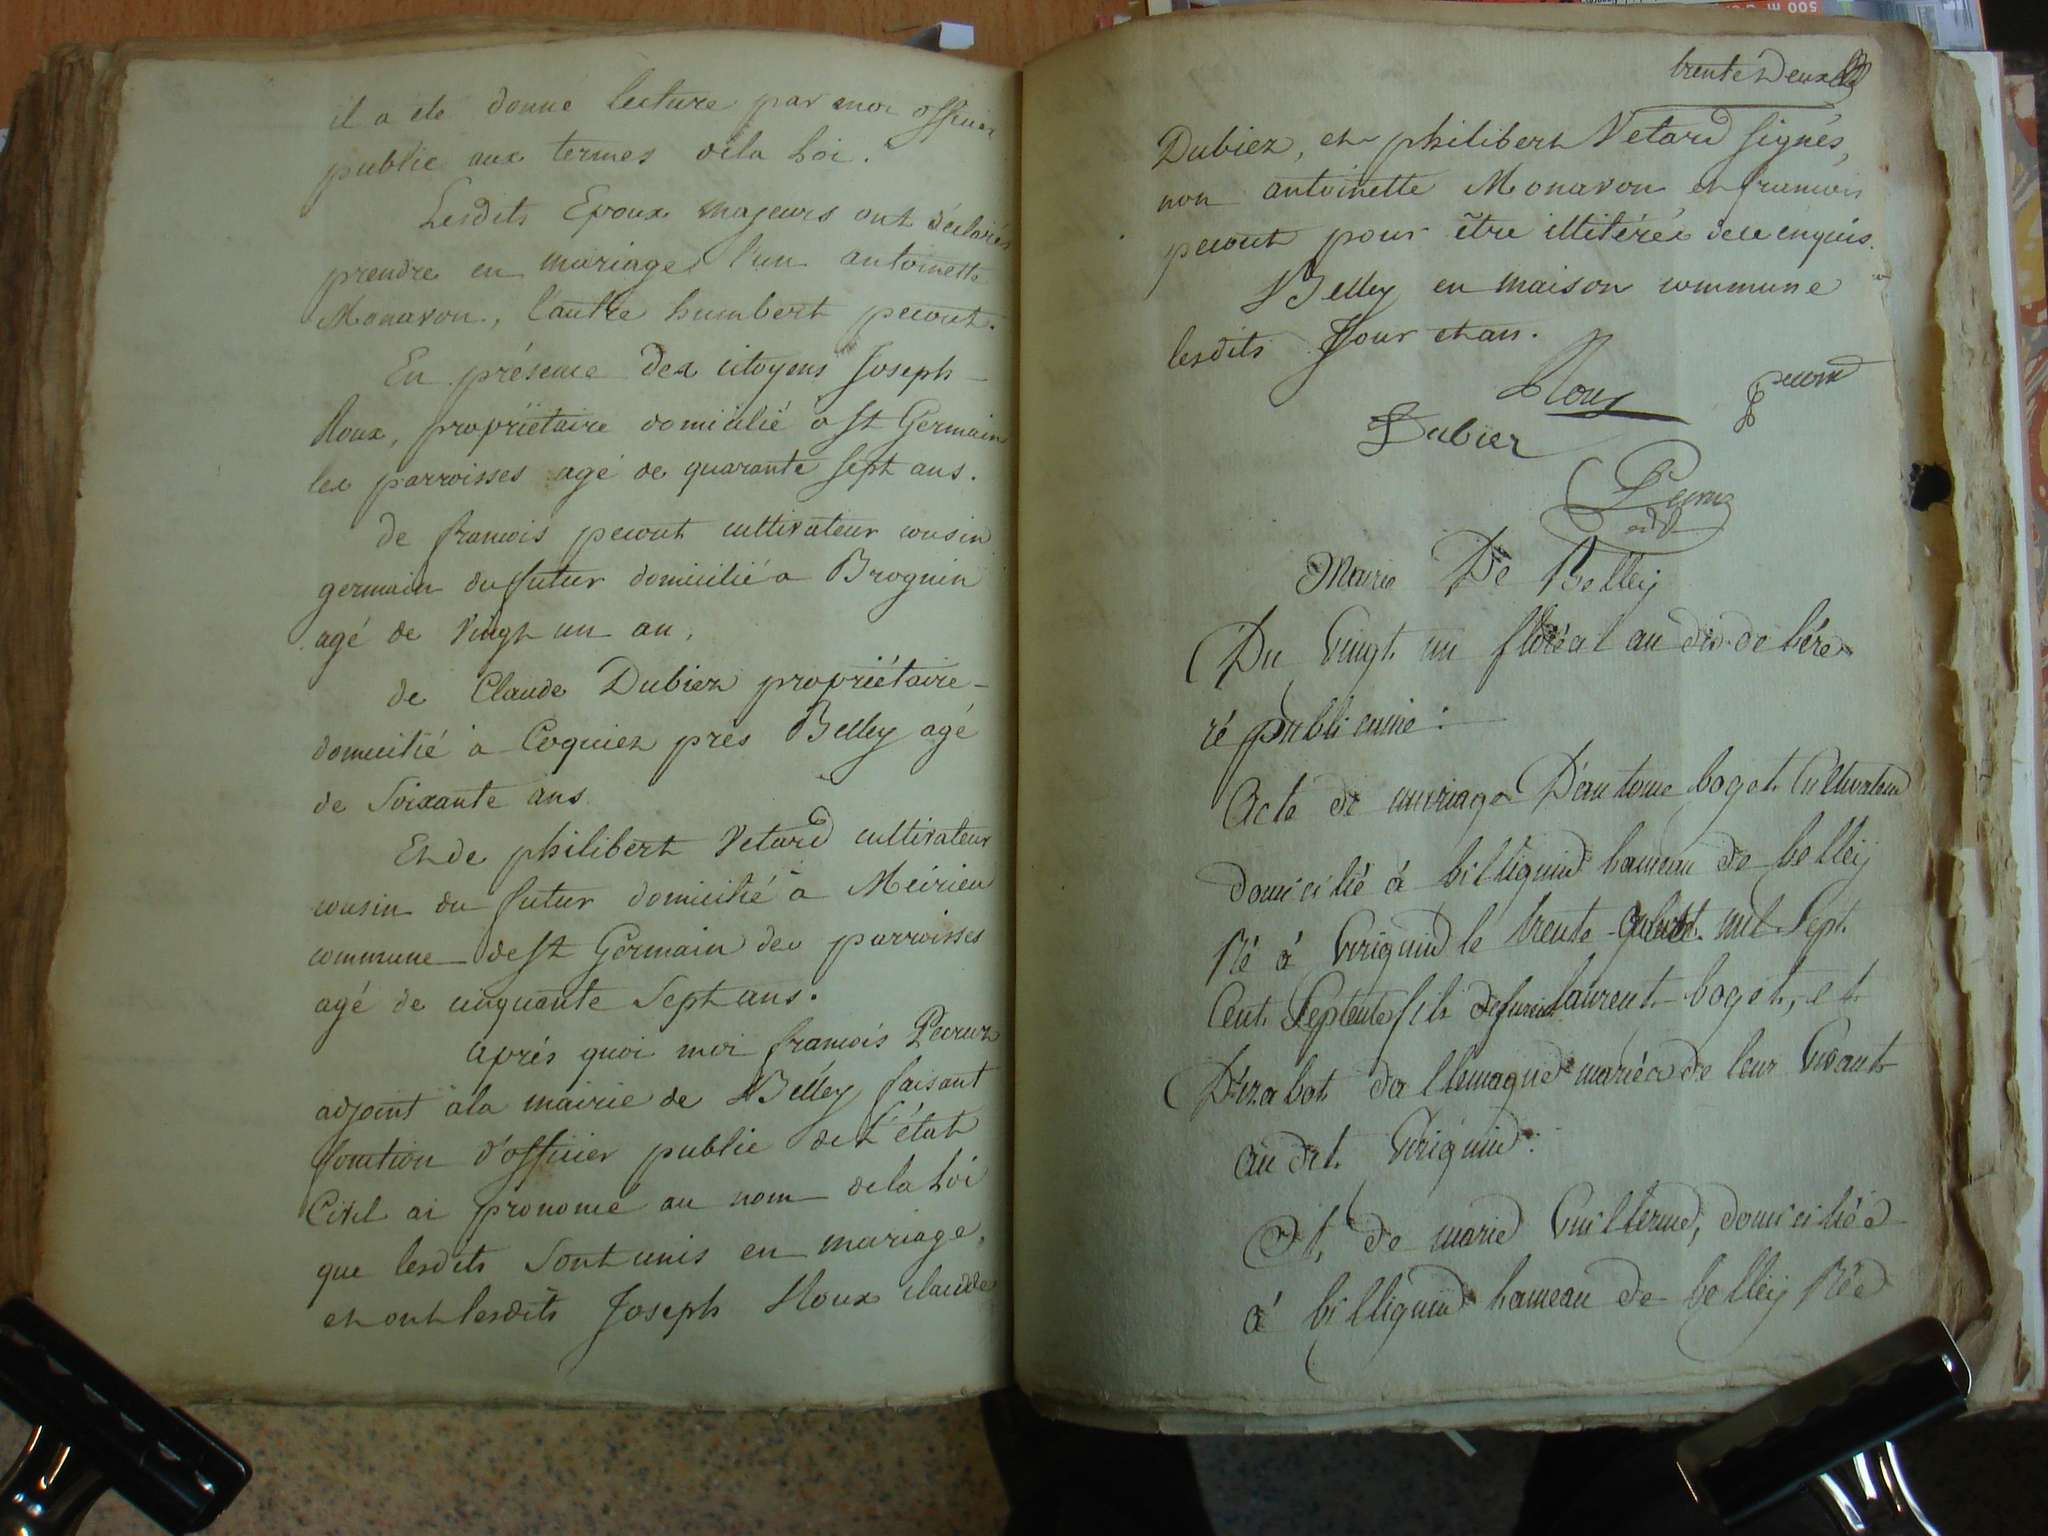 il a été donné lecture par moi officier
public aux termes dela Loi.
Lesdits Epoux majeurs ont déclarés
prendre en mariage l'un antoinette
Monavon, l'autre humbert pecout.
En présence des citoyens Joseph
Roux, propriétaire domicilié a St Germain
les parroisses agé de quarante sept ans.
de francois pecout cultivateur cousin
germain du futur domicilié a Brognin
agé de vingt un an,
de Claude Dubiez propriétaire
domicilié à Coquiez prés Belley agé
de Soixante ans
Et de philibert Vetard cultivateur
cousin du futur domicilié a Meirieu
commune de St Germain des parroisses
agé de cinquante Sept ans.
aprés quoi moi francois
adjoint àla mairie de Belley faisant
fonction d'officier public de L'état
Civil ai prononcé au nom dela Loi
que lesdits Sont unis en mariage,
et ont lesdits Joseph Roux claude
trente Deux
Dubiez, et philibert Vetard signés,
non antoinette Monavon et francois
pecout pour être illitérés dece enquis.
Belley en maison commune
lesdits Jour et an.
Roux
pecout
Dubiez
adjt
Mairie De Belleÿ
Du vingt un floréal an dix de l'ére
républicaine :
Acte de mariage D'antoine boget Cultivateur
domicilié à billignin hameau de belleÿ
Né à Virignin le trente mil Sept
Cent Septente fils defunt laurent boget, et
D'izabot dallemagne mariés de leur vivant
au det. Virignin.
Et, de marie Guillerme, domiciliée
à billignin hameau de belleÿ Née